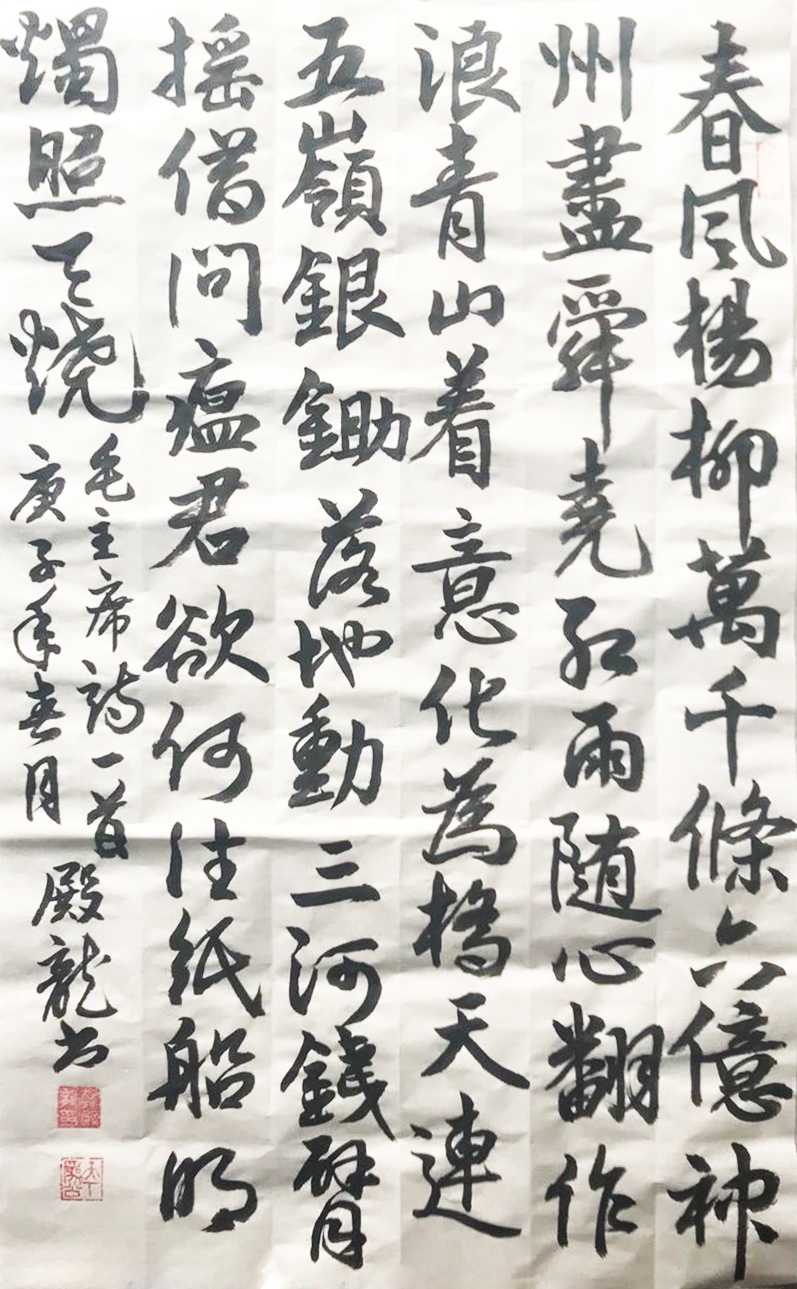 春風楊柳萬千條六億神
州盡舜堯紅雨随心翻作
浪青山着意化為橋天連
五嶺銀鋤落地動三河鐡臂
摇借問瘟君欲何往紙船明
燭照天燒
毛主席詩一首
庚子年春月
殿龍書